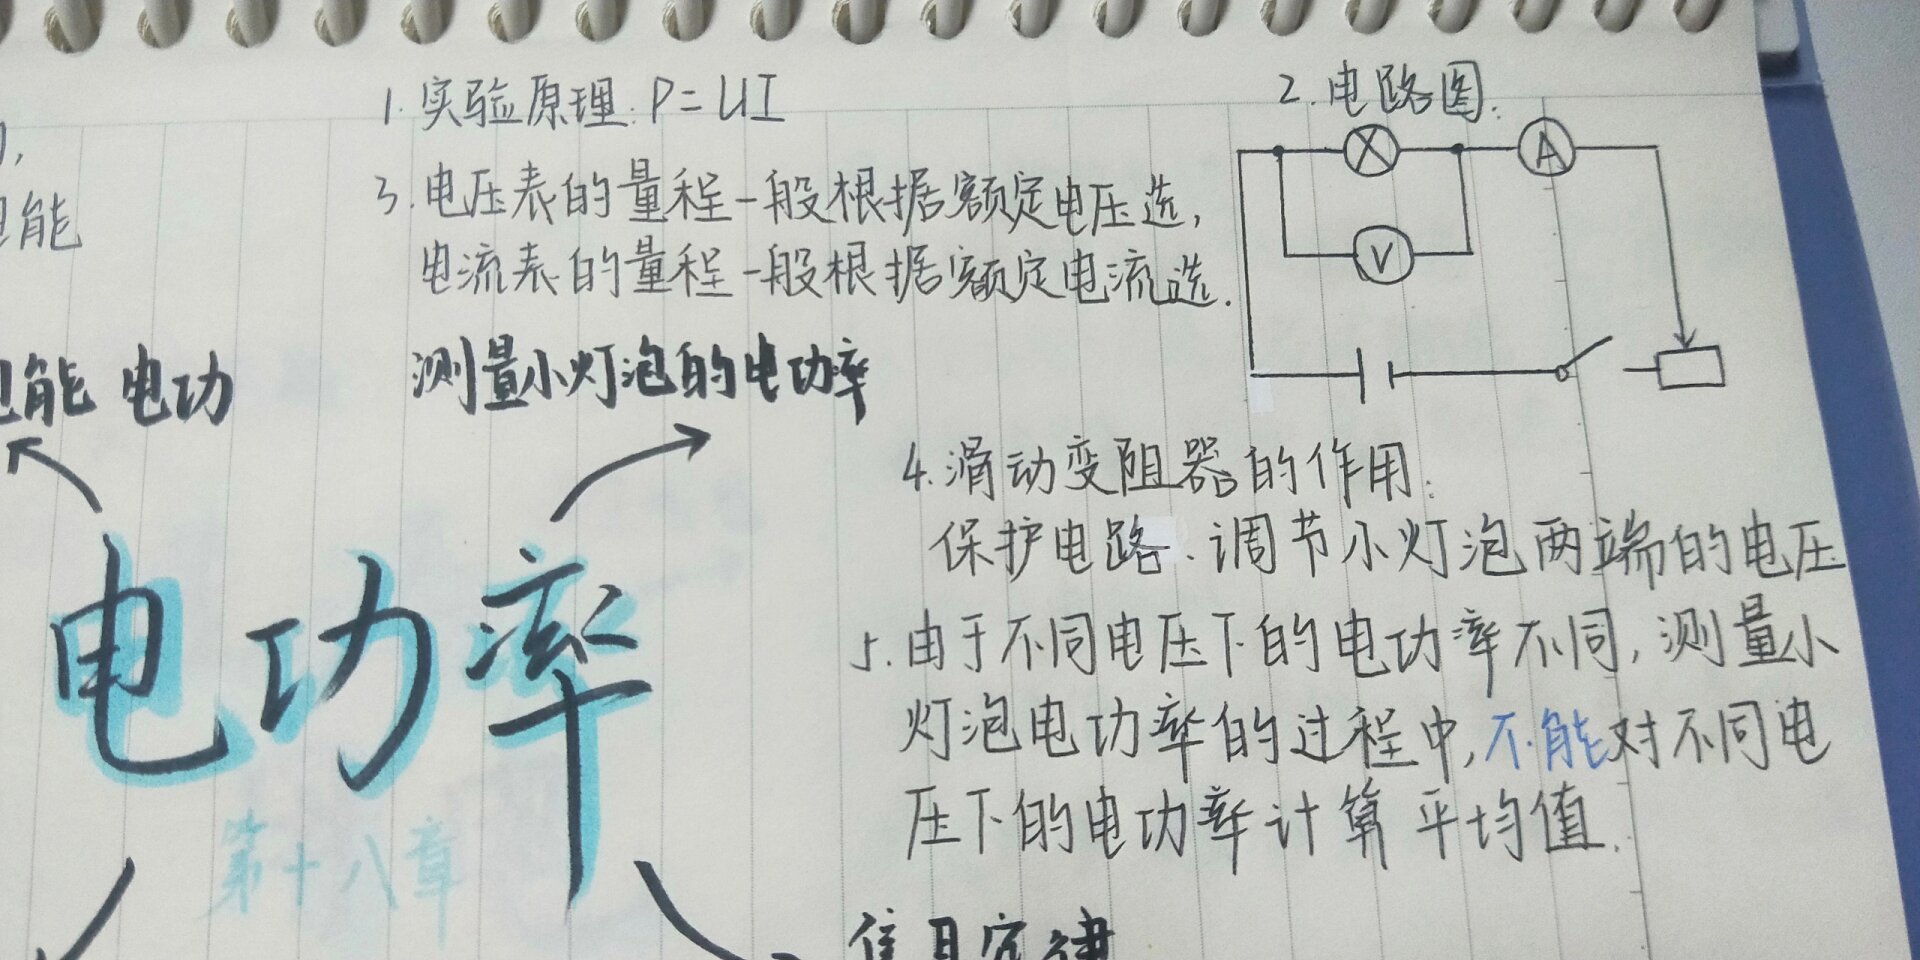 1. 实验原理: P=UI
2. 电路图:
A
V
3. 电压表的量程一般根据额定电压选,
电流表的量程一般根据额定电流选.
能
电能 电功
测量小灯泡的电功率
4. 滑动变阻器的作用:
保护电路、调节小灯泡两端的电压
5. 由于不同电压下的电功率不同, 测量小
灯泡电功率的过程中, 不能对不同电
压下的电功率计算平均值.
电功率
第十八章
焦耳定律